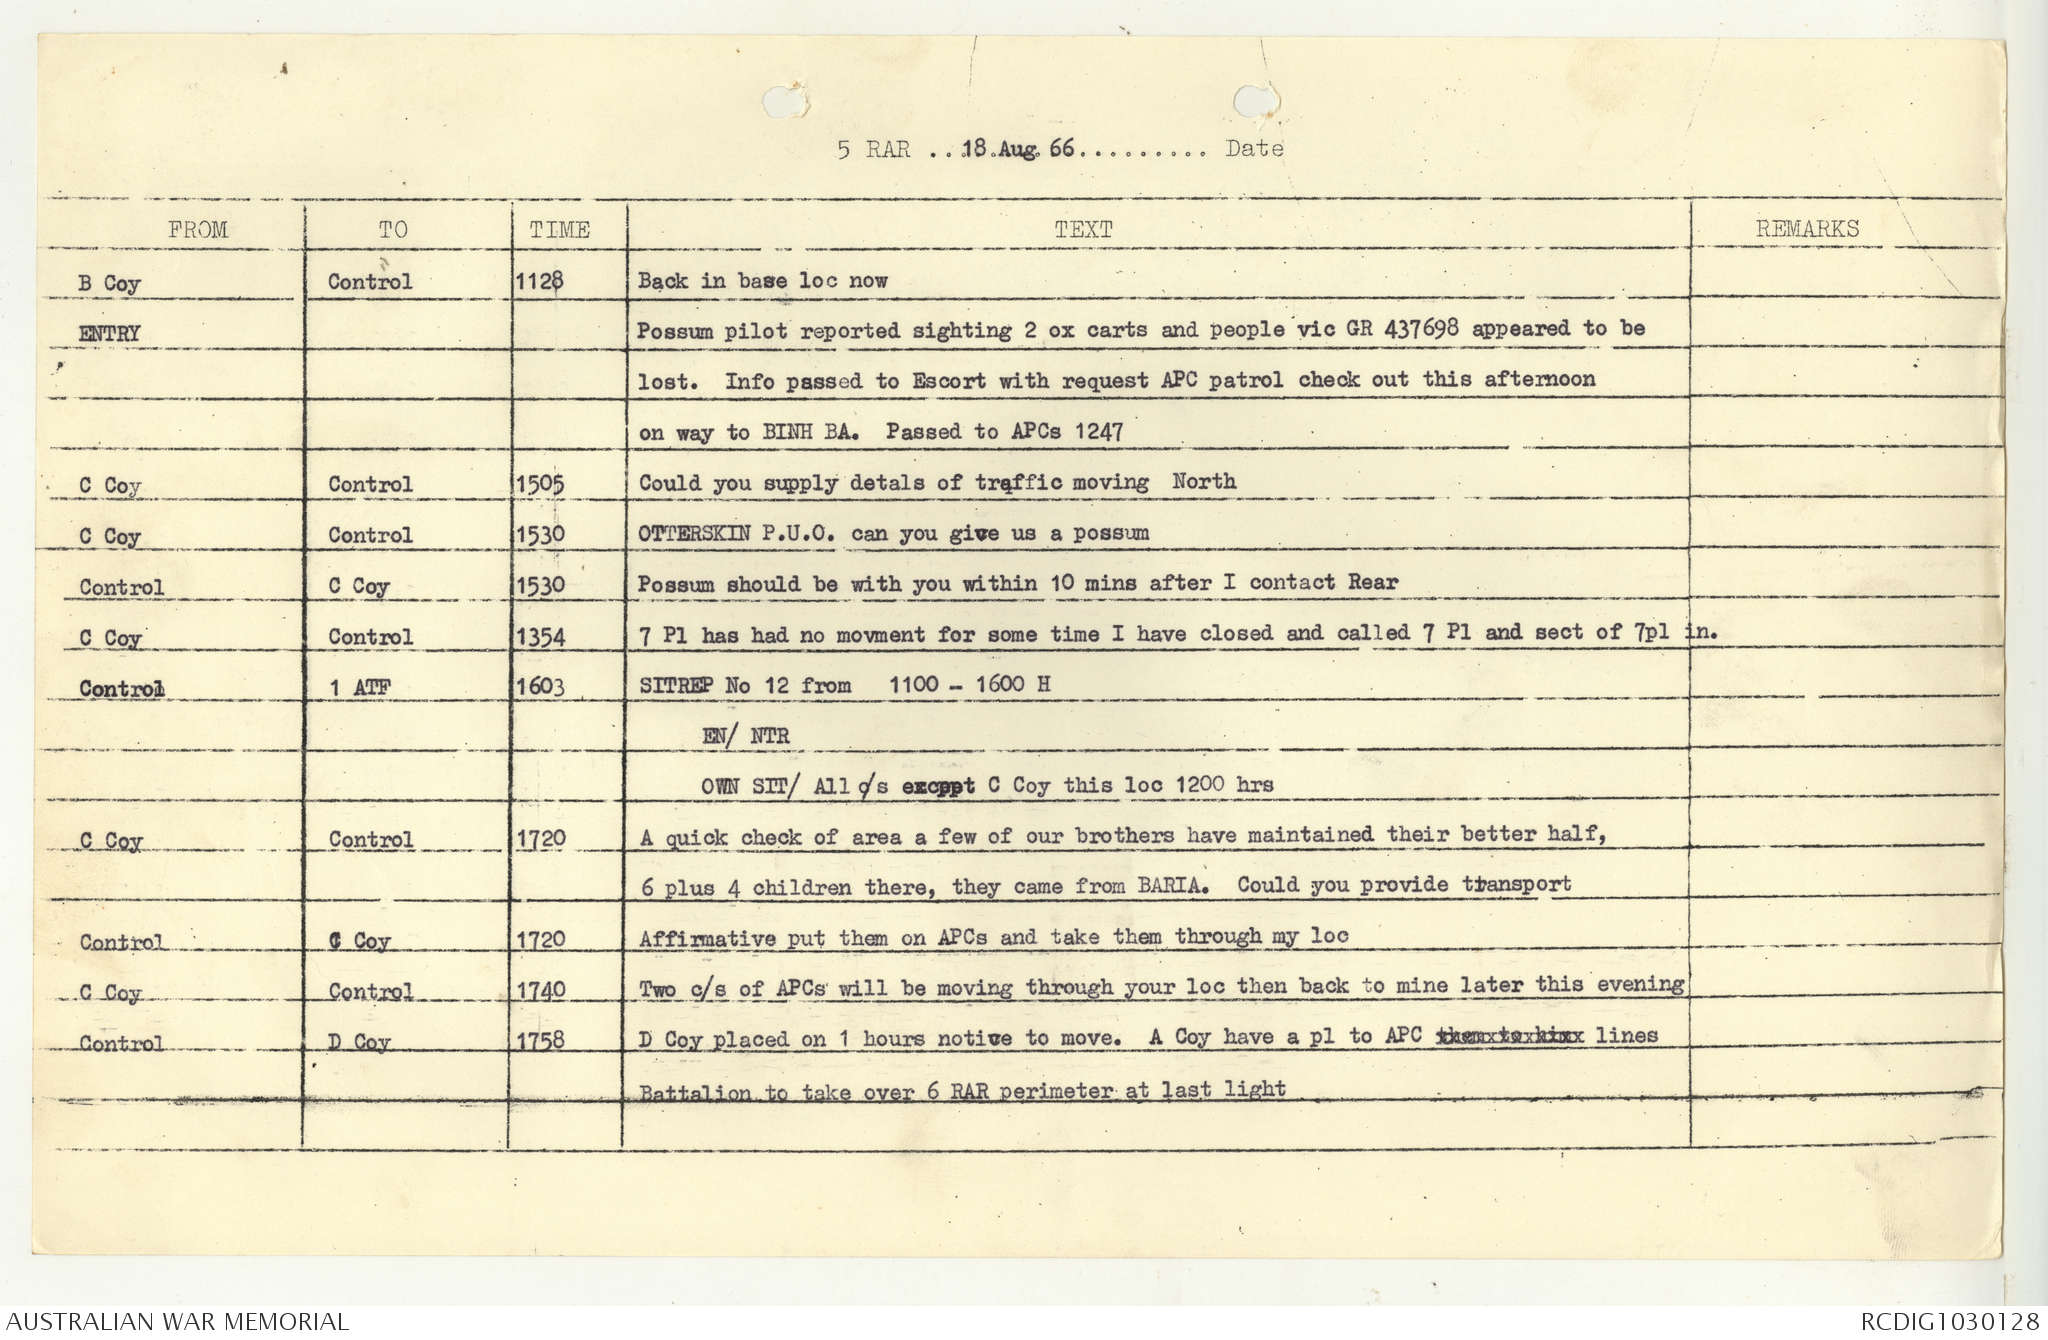 5 RAR ...18.Aug. 66.......... Date
FROM TO TIME TEXT REMARKS
B Coy Control 1128 Back in base loc now
ENTRY Possum pilot reported sighting 2 ox carts and people vic GR 437698 appeared to be
lost. Info passed to Escort with request APC patrol check out this afternoon
on way to BINH BA. Passed to APCs 1247
C Coy Control 1505 Could you supply detals of traffic moving North
C Coy Control 1530 OTTERSKIN P.U.O. can you give us a possum
Control C Coy 1530 Possum should be with you within 10 mins after I contact Rear
C Coy Control 1354 7 Pl has had no movment for some time I have closed and called 7 Pl and sect of 7pl in.
Control 1 ATF 1603 SITREP No 12 from 1100 - 1600 H
EN/ NTR
OWN SIT/ All c/s except C Coy this loc 1200 hrs
C Coy Control 1720 A quick check of area a few of our brothers have maintained their better half,
6 plus 4 children there, they came from BARIA. Could you provide transport
Control C Coy 1720 Affirmative put them on APCs and take them through my loc
C Coy Control 1740 Two c/s of APCs will be moving through your loc then back to mine later this evening
Control D Coy 1758 D Coy placed on 1 hours notice to move. A Coy have a pl to APC lines
Battalion to take over 6 RAR perimeter at last light
AUSTRALIAN WAR MEMORIAL RCDIG1030128